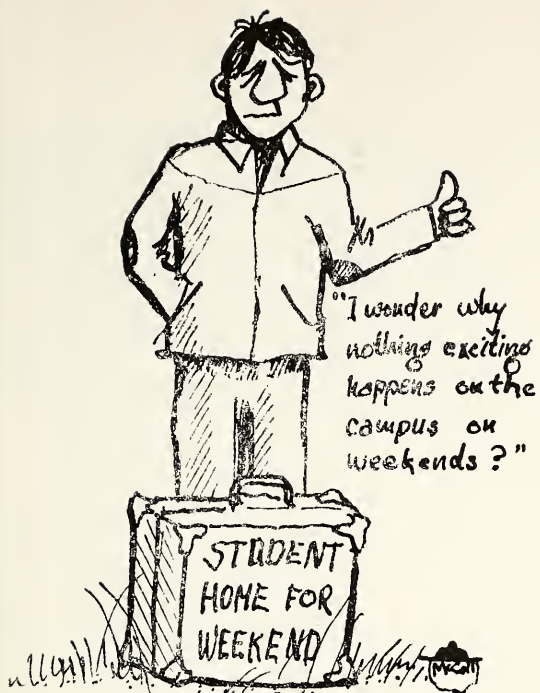 "I wonder why
nothing exciting
happens on the
campus on
weekends?"
STUDENT
HOME FOR
WEEKEND